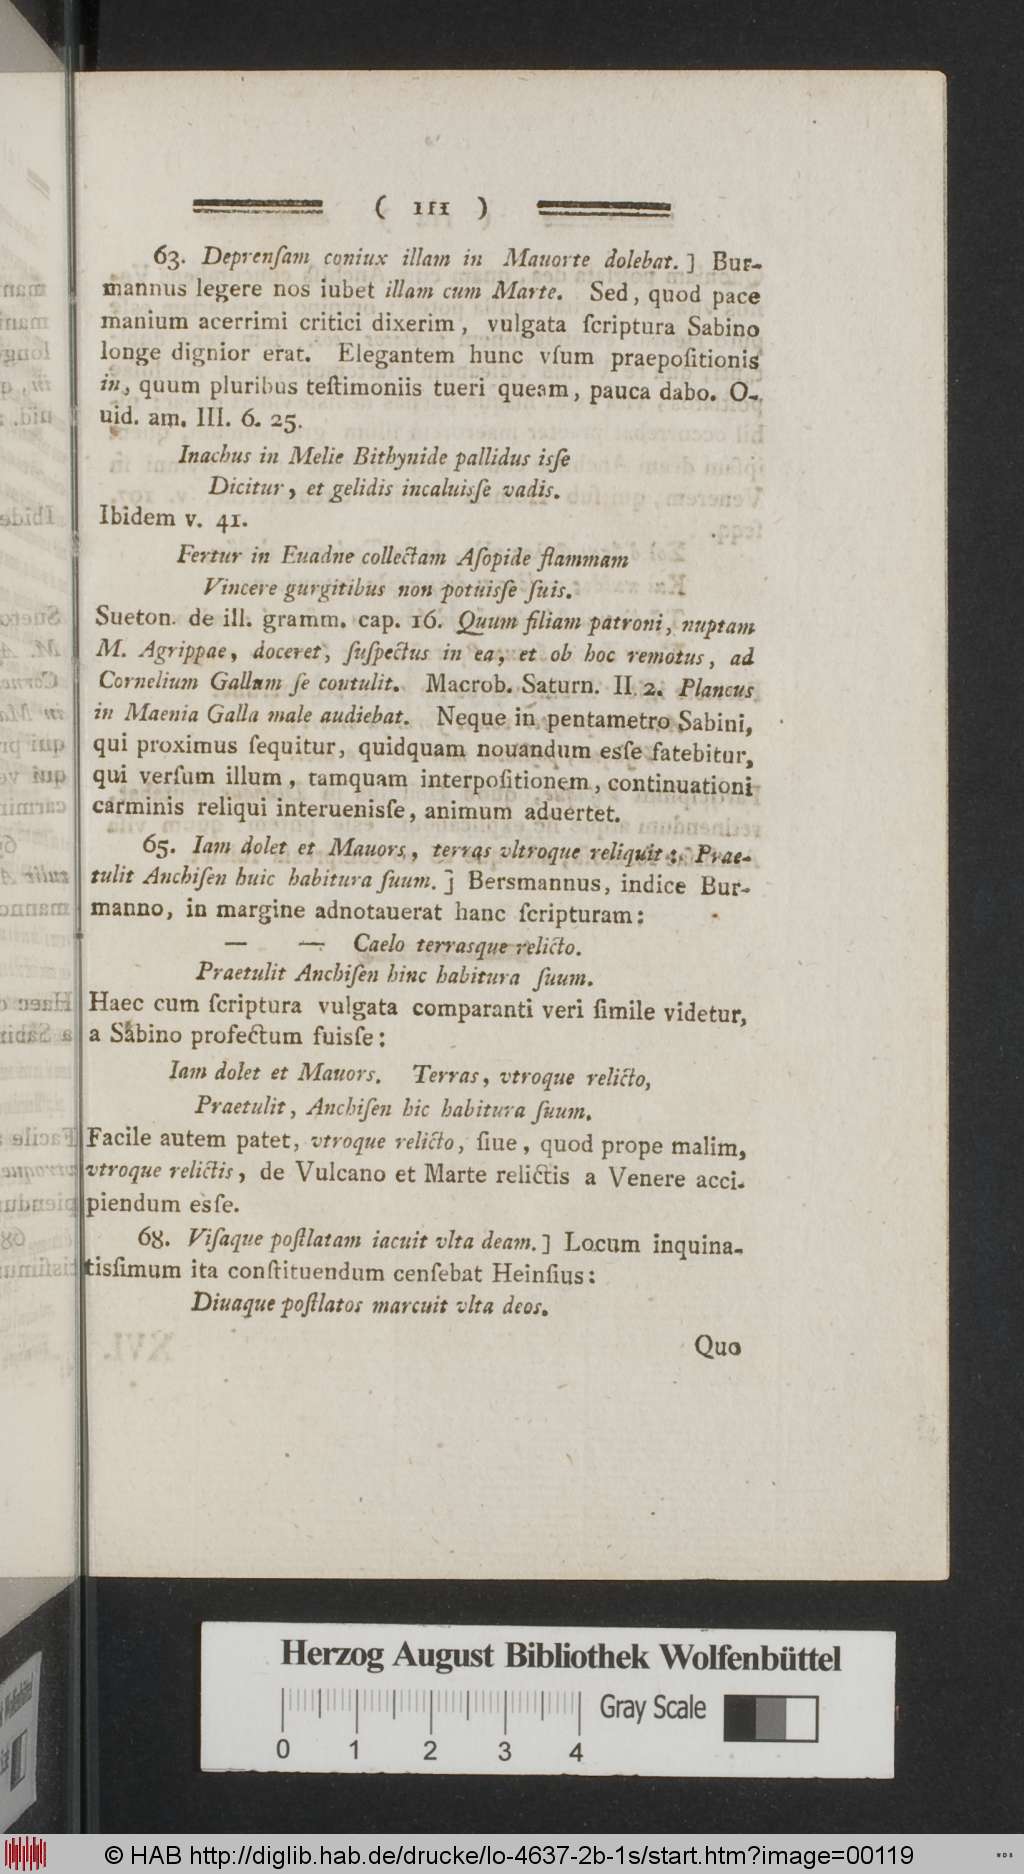 ( 111 )
63. Deprenſam coniux illam in Mauorte dolebat. ] Bur-
mannus legere nos iubet illam cum Marte. Sed, quod pace
manium acerrimi critici dixerim, vulgata ſcriptura Sabino
longe dignior erat. Elegantem hunc vſum praepoſitionis
in, quum pluribus teſtimoniis tueri queam, pauca dabo. O-
uid. am. III. 6. 25.
Inachus in Melie Bithynide pallidus isſe
Dicitur, et gelidis incaluisſe vadis.
Ibidem v. 41.
Fertur in Euadne collectam Aſopide flammam
Vincere gurgitibus non potuisſe ſuis.
Sueton. de ill. gramm. cap. 16. Quum filiam patroni, nuptam
M. Agrippae, doceret, ſuſpectus in ea, et ob hoc remotus, ad
Cornelium Gallum ſe contulit. Macrob. Saturn. II. 2. Plancus
in Maenia Galla male audiebat. Neque in pentametro Sabini,
qui proximus ſequitur, quidquam nouandum esſe fatebitur,
qui verſum illum, tamquam interpoſitionem, continuationi
carminis reliqui interuenisſe, animum aduertet.
65. Iam dolet et Mauors, terras vltroque reliquit: Prae-
tulit Anchiſen huic habitura ſuum. ] Bersmannus, indice Bur-
manno, in margine adnotauerat hanc ſcripturam:
— — Caelo terrasque relicto.
Praetulit Anchiſen hinc habitura ſuum.
Haec cum ſcriptura vulgata comparanti veri ſimile videtur,
a Sabino profectum fuisſe:
Iam dolet et Mauors. Terras, vtroque relicto,
Praetulit, Anchiſen hic habitura ſuum.
Facile autem patet, vtroque relicto, ſiue, quod prope malim,
vtroque relictis, de Vulcano et Marte relictis a Venere acci-
piendum esſe.
68. Viſaque poſtlatam iacuit vlta deam. ] Locum inquina-
tisſimum ita conſtituendum cenſebat Heinſius:
Diuaque poſtlatos marcuit vlta deos.
Quo
Herzog August Bibliothek Wolfenbüttel
Gray Scale
0 1 2 3 4
© HAB http://diglib.hab.de/drucke/lo-4637-2b-1s/start.htm?image=00119